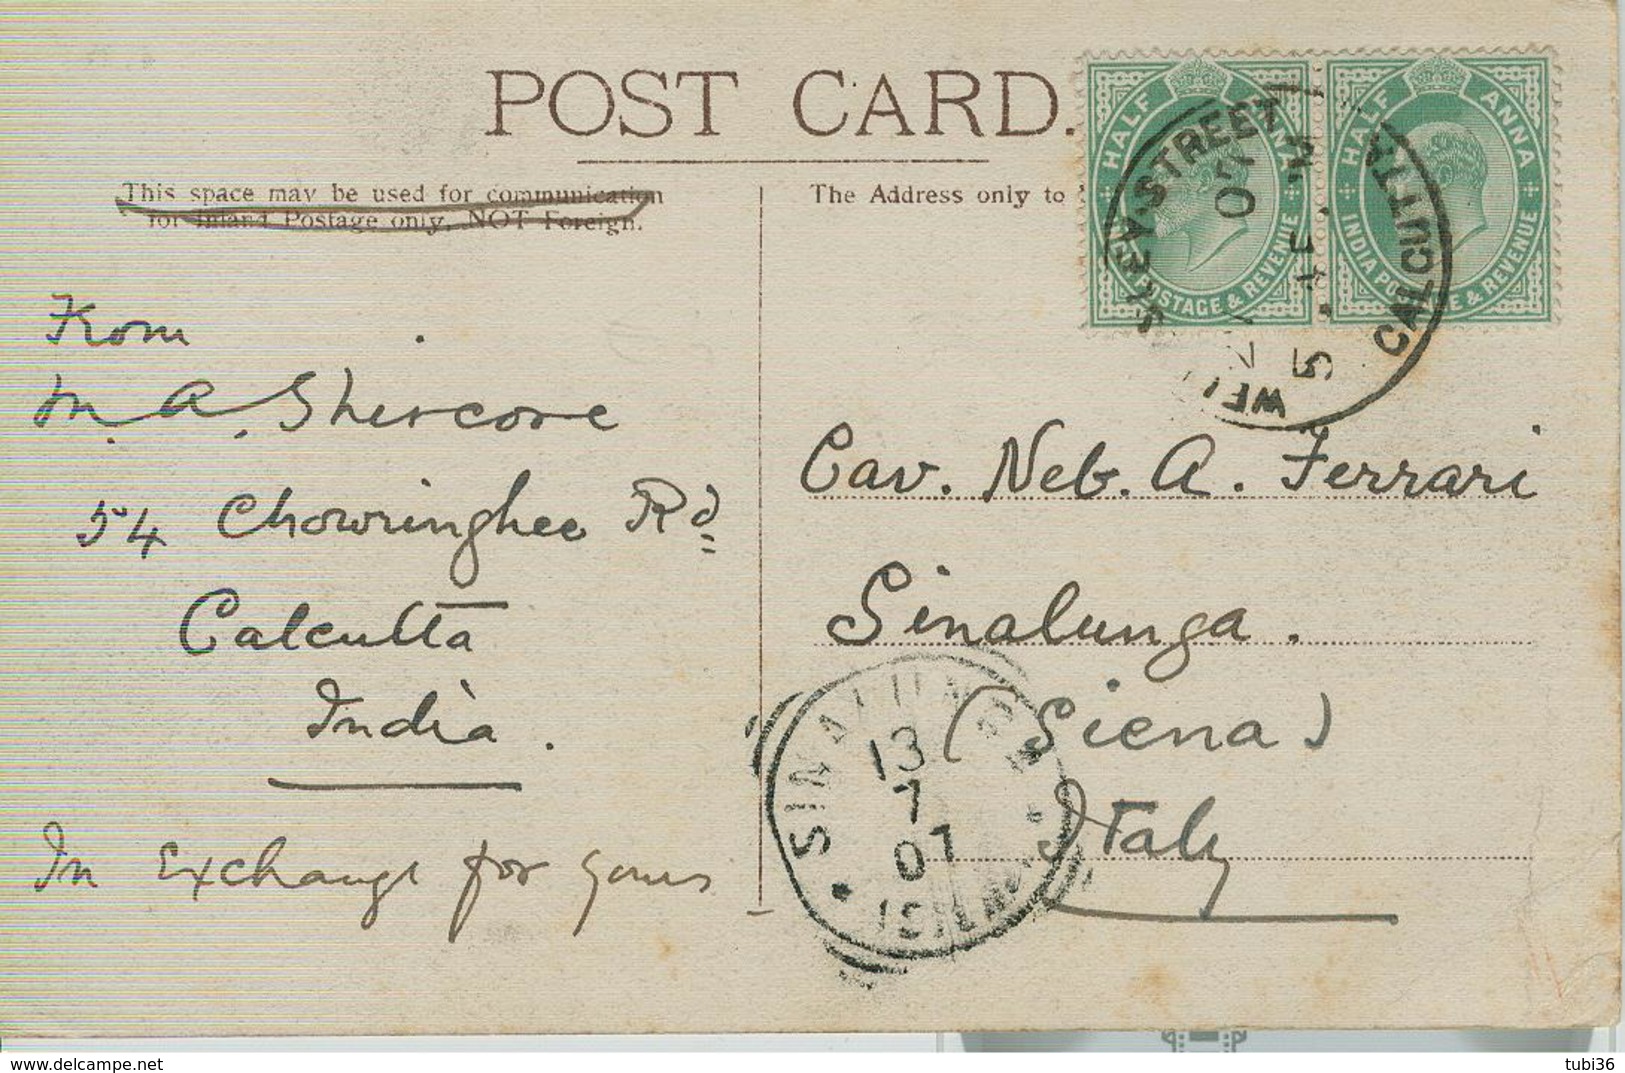 POST CARD.
This space may be used for communication
for Inland Postage only, NOT Foreign.
The Address only to
HALF ANNA
INDIA POSTAGE & REVENUE
HALF ANNA
INDIA POSTAGE & REVENUE
STREET
CALCUTTA
From
M. A. Shircore
54 Chowringhee Rd
Calcutta
India.
In Exchange for yours
Cav. Neb. A. Ferrari
Sinalunga.
(Siena)
Italy
SINALUNGA
13
7
07
www.delcampe.net
tubi36